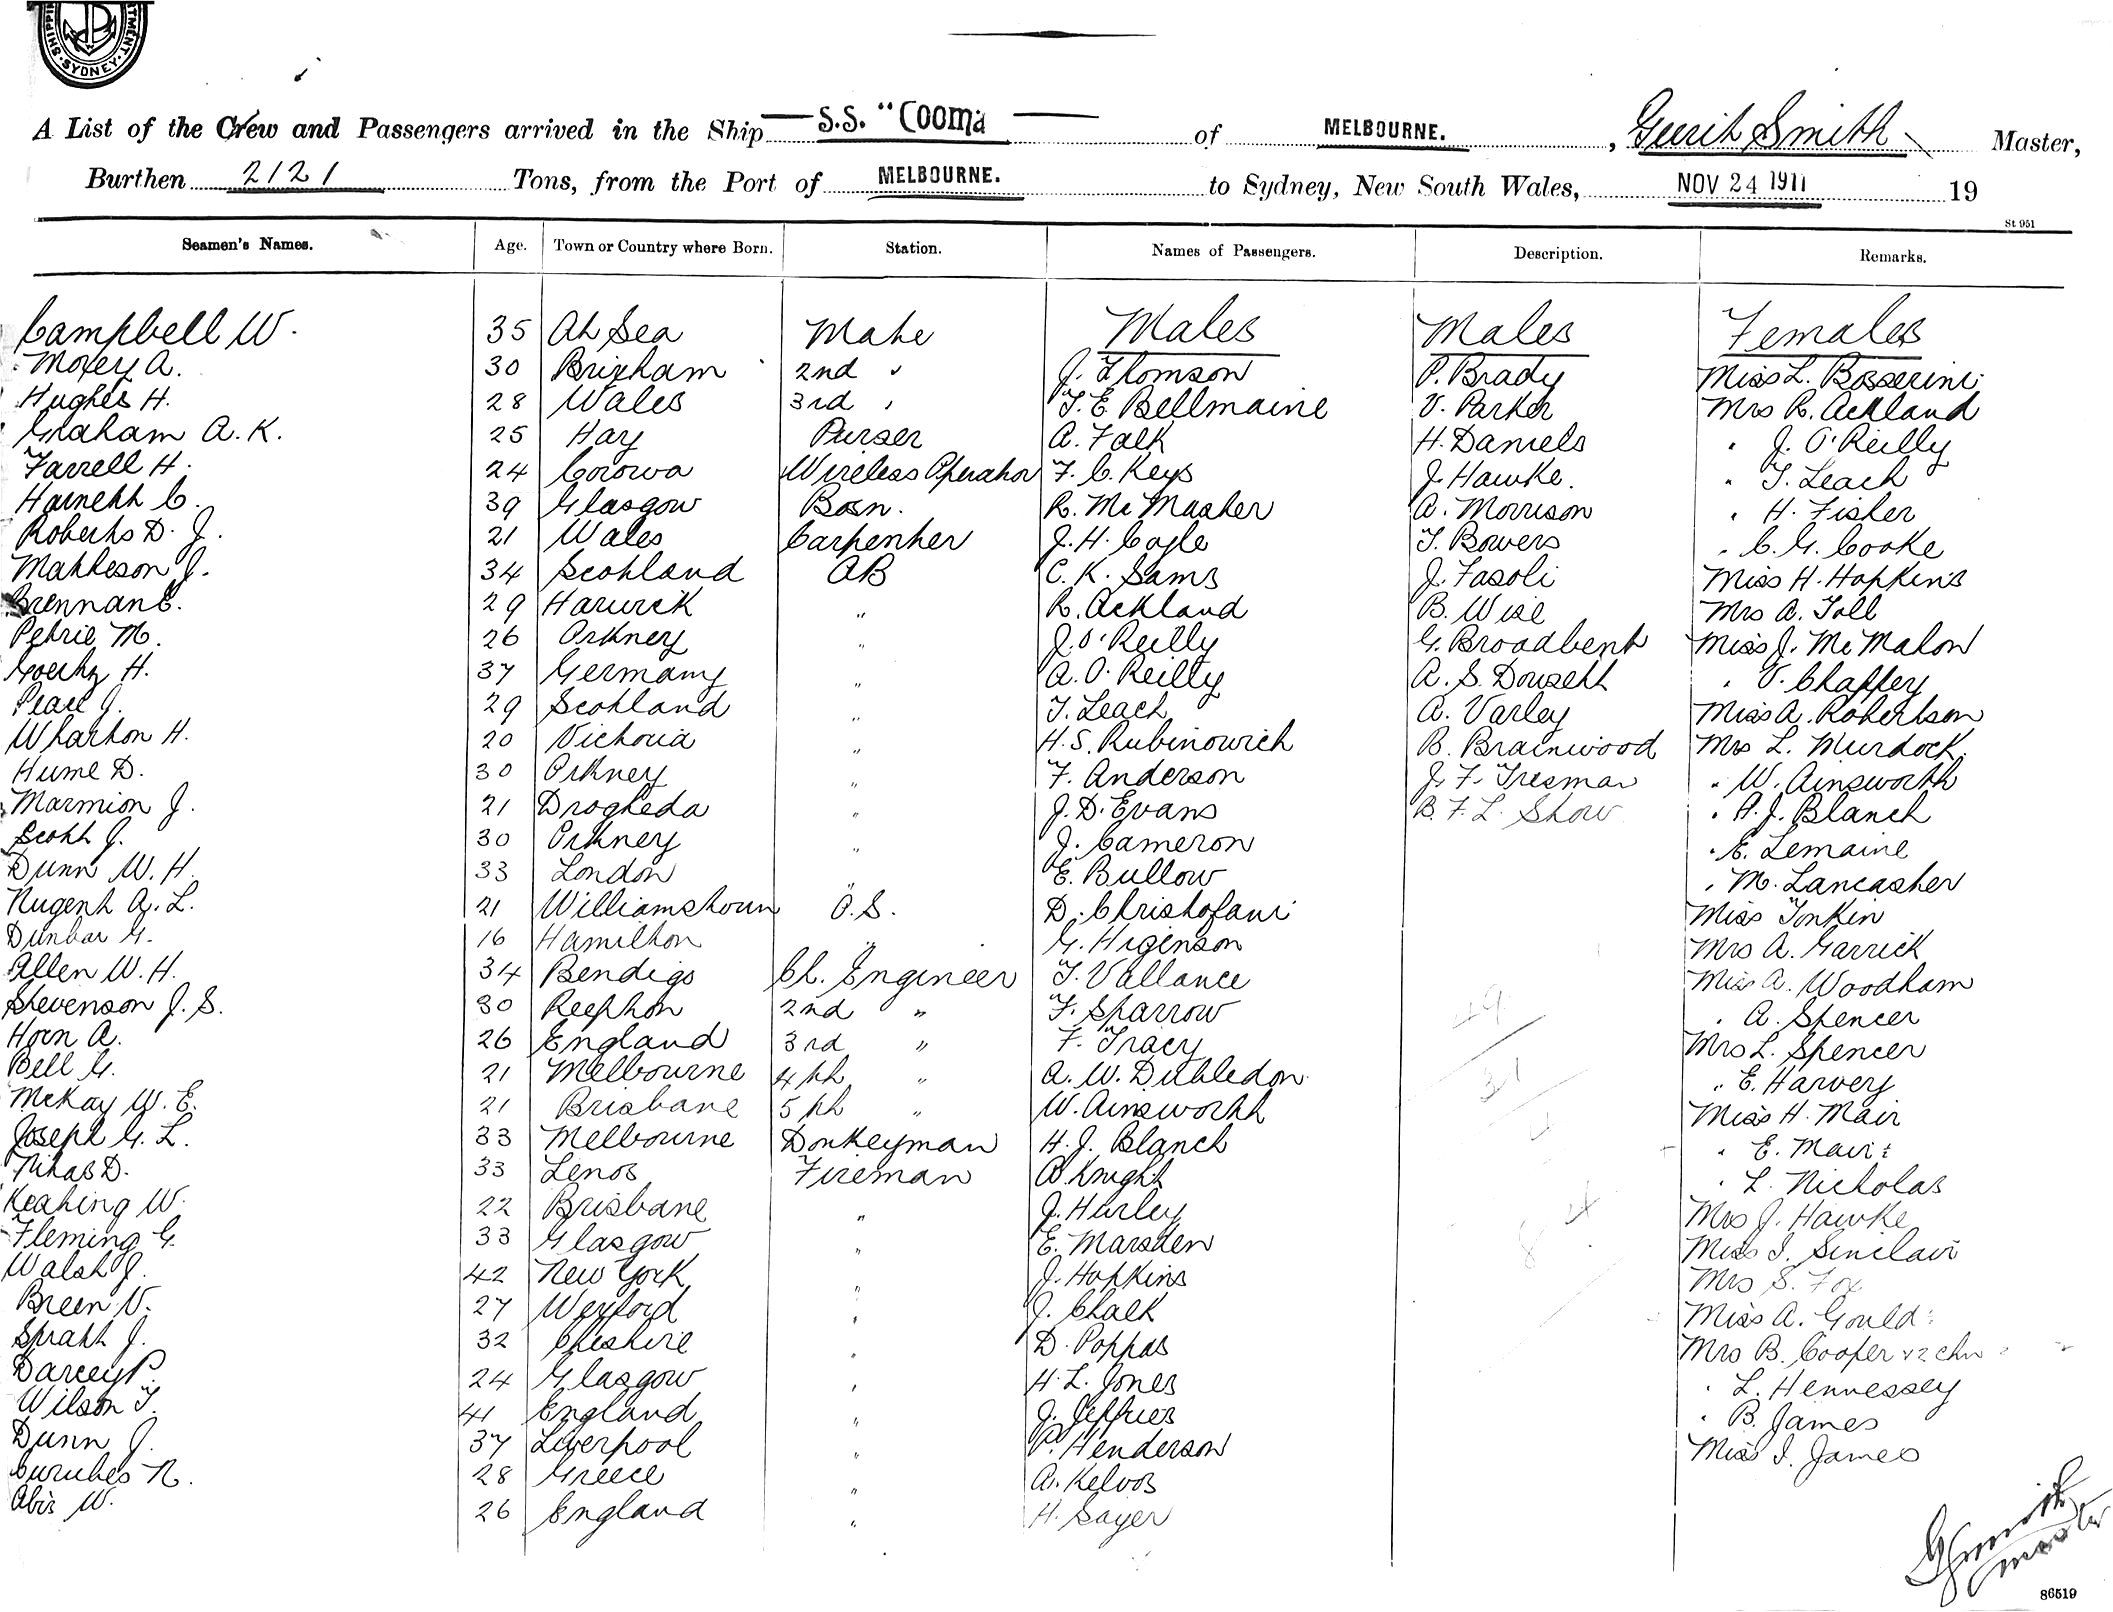 SHIPPING DEPARTMENT SYDNEY
A List of the Crew and Passengers arrived in the Ship S.S. "Cooma of MELBOURNE. , Gerrit Smith Master,
Burthen 2121 Tons, from the Port of MELBOURNE. to Sydney, New South Wales, NOV 24 1911 19
St 951
Seamen's Names. Age. Town or Country where Born. Station. Names of Passengers. Description. Remarks.
Campbell W. 35 At Sea Mate Males Males Females
Moxey A. 30 Brixham 2nd " J. Thomson P. Brady Miss L. Bosserini
Hughes H. 28 Wales 3rd " T. E. Bellmaine V. Parker Mrs R. Ackland
Graham A. K. 25 Hay Purser A. Falk H. Daniels " J. O'Reilly
Farrell H. 24 Corowa Wireless Operator F. C. Keys J. Hawke. " T. Leach
Harnett C. 39 Glasgow Bosn. R. McMaster A. Morrison " H. Fisher
Roberts D. J. 21 Wales Carpenter J. H. Cogle T. Bowers " C. G. Cooke
Matheson J. 34 Scotland AB C. K. Sams J. Fasoli Miss H. Hopkins
Brennan E. 29 Harwick " R. Ackland B. Wise Mrs A. Toll
Petrie M. 26 Orkney " J. O'Reilly G. Broadbent Miss J. McMahon
Goertz H. 37 Germany " A. O'Reilly A. S. Dowsett " V. Chaffey
Peace J. 29 Scotland " T. Leach A. Varley Miss A. Robertson
Wharton H. 20 Victoria " H. S. Rubinowich B. Brainwood Mrs L. Murdock
Hume D. 30 Orkney " F. Anderson J. F. Tresmar " W. Ainsworth
Marmion J. 21 Drogheda " J. D. Evans B. F. L. Show " H. J. Blanch
Scott J. 30 Orkney " J. Cameron " E. Lemaine
Dunn W. H. 33 London " E. Bullow " M. Lancaster
Nugent A. L. 21 Williamstown O.S. D. Christofani Miss Tonkin
Dunbar G. 16 Hamilton " G. Higinson Mrs A. Garrick
Allen W. H. 34 Bendigo Ch. Engineer T. Vallance Miss A. Woodham
Stevenson J. S. 30 Reepton 2nd " F. Sparrow " A. Spencer
Horn A. 26 England 3rd " F. Tracy Mrs L. Spencer
Bell G. 21 Melbourne 4th " A. W. Dubledon " E. Harvey
McKay W. E. 21 Brisbane 5th " W. Ainsworth Miss H. Mair
Joseph G. L. 33 Melbourne Donkeyman H. J. Blanch " E. Mair
D. 33 Lenos Fireman A. Knight " L. Nicholas
Keating W. 22 Brisbane " J. Hurley Mrs J. Hawke
Fleming G. 33 Glasgow " E. Marsden Miss I. Sinclair
Walsh J. 42 New York " J. Hopkins Mrs S. Fox
Breen N. 27 Wexford " J. Chalk Miss A. Gould
Spratt J. 32 Cheshire " D. Poppas Mrs B. Cooper & 2 chn
Darcey P. 24 Glasgow " H. L. Jones " L. Hennessey
Wilson T. 41 England " J. Jeffries " B. James
Dunn J. 37 Liverpool " P. Henderson Miss I. James
N. 28 Greece " A. Kelvos
Abir W. 26 England " H. Sayer
G Smith
Master
86519